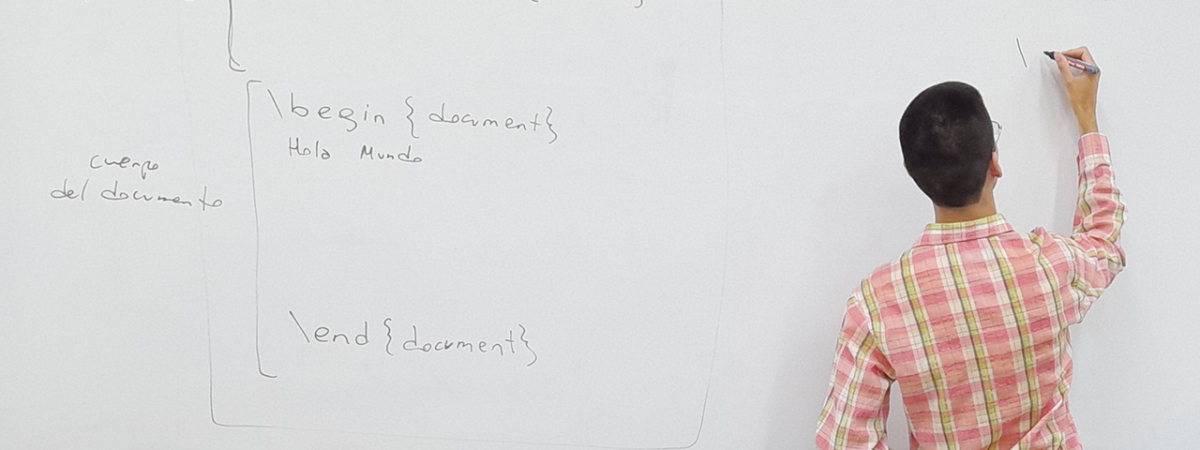 \begin {document}
Hola Mundo
cuerpo
del documento
\end {document}
\